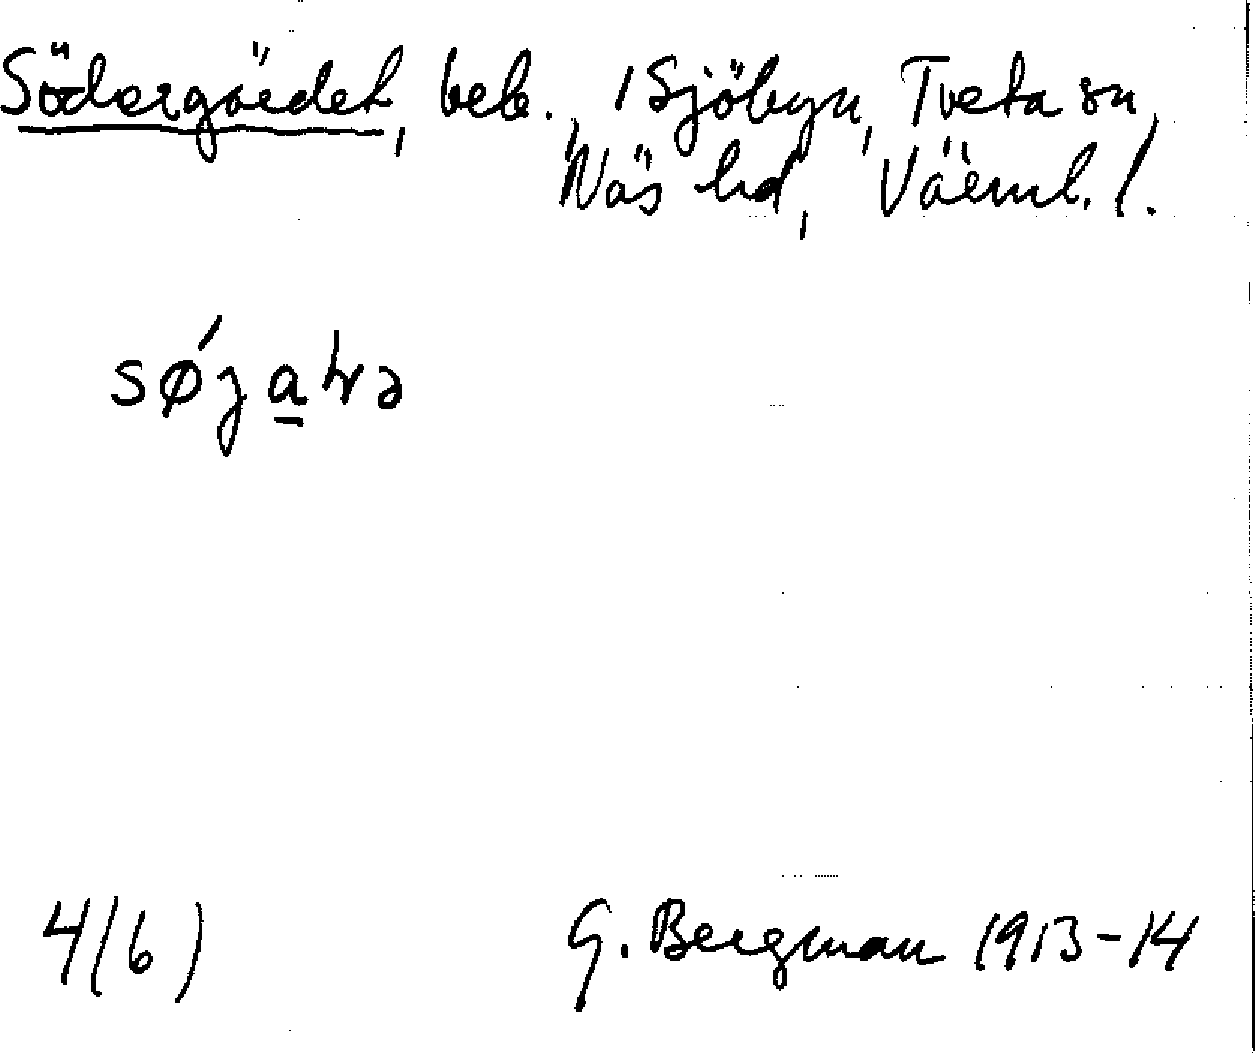 Södergärdet, beb., Sjöbyn, Tveta sn,
Näs hd, Värml. l.
4(6)
G. Bergman 1913-14